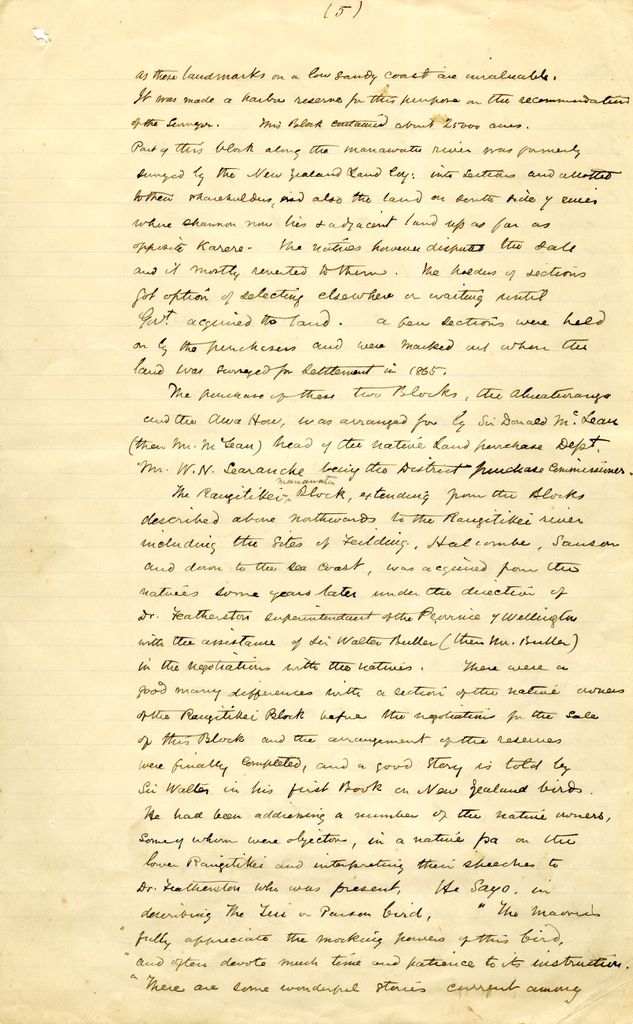 (5)
as these landmarks on a low sandy coast are invaluable.
It was made a harbor reserve for this purpose on the recommendation
of the Surveyor. This Block contained about 25000 acres.
Part of this block along the Manawatu river was formerly
surveyed by the New Zealand Land Coy: into sections and allotted
to their shareholders, and also the land on south side of river
where Shannon now lies & adjacent land up as far as
opposite Karere. The natives however disputed the sale
and it mostly reverted to them. The holders of sections
got option of selecting elsewhere or waiting until
Govt. acquired the land. A few sections were held
on by the purchasers and were marked out when the
land was surveyed for settlement in 1865.
The purchase of these two Blocks, the Ahuaturanga
and the Awa Hou, was arranged for by Sir Donald McLean
(then Mr. McLean) head of the Native Land purchase Dept.
Mr. W. N. Searancke being the District purchase Commissioner.
manawatu
The Rangitikei Block, extending from the Blocks
described above northwards to the Rangitikei river
including the sites of Feilding, Halcombe, Sanson
and down to the sea coast, was acquired from the
natives some years later under the direction of
Dr. Featherston superintendant of the Province of Wellington
with the assistance of Sir Walter Buller (then Mr. Buller)
in the negotiations with the natives. There were a
good many differences with a section of the native owners
of the Rangitikei Block before the negotiation for the sale
of this Block and the arrangement of the reserves
were finally completed, and a good story is told by
Sir Walter in his first Book on New Zealand birds.
He had been addressing a number of the native owners,
some of whom were objectors, in a native pa on the
lower Rangitikei and interpreting their speeches to
Dr. Featherston who was present. He says, in
describing The Tui or Parson bird, "The Maoris
"fully appreciate the mocking powers of this bird,
"and often devote much time and patience to its instruction.
"There are some wonderful stories current among